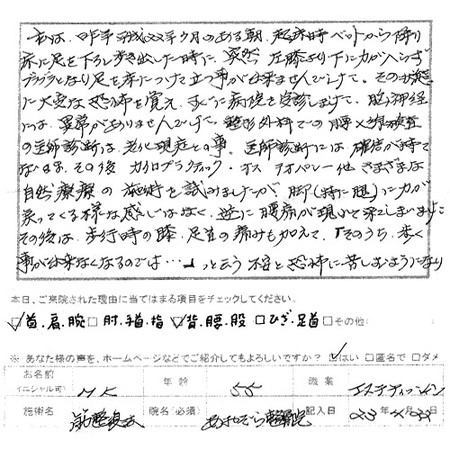 私は、昨年 平成22年9月のある朝、起床時ベットから降り
床に足を下ろし歩き出した時に、突然 左膝より下に力が入らず
ブラブラとなり足を床につけて立つ事が出来ませんでした。その状態
に大変な恐怖を覚え、すぐに病院を受診しました。脳神経
には、異常がありませんでした。整形外科での腰X線検査
の医師診断は、老化現症との事。医師診断には確信が持て
ないまま、その後 カイロプラクティック・オステオパシー他 さまざまな
自然療療の施術を試みましたが、脚(特に腿)に力が
戻ってくる様な感じはなく、逆に腰痛が現れて来てしまいました
その後は、歩行時の膝、足首の痛みも加えて、「そのうち、歩く
事が出来なくなるのでは…」っと言う不安と恐怖に苦しむようになり
本日、ご来院された理由に当てはまる項目をチェックしてください。
☑首、肩、腕 □肘、手首、指 ☑背、腰、股 □ひざ、足首 □その他:
※ あなた様の声を、ホームページなどでご紹介してもよろしいですか? ☑はい □匿名で □ダメ
お名前 (イニシャル可) M.K 年齢 55 職業 エステティシャン
施術名 院名(必須) 記入日 年 月 日